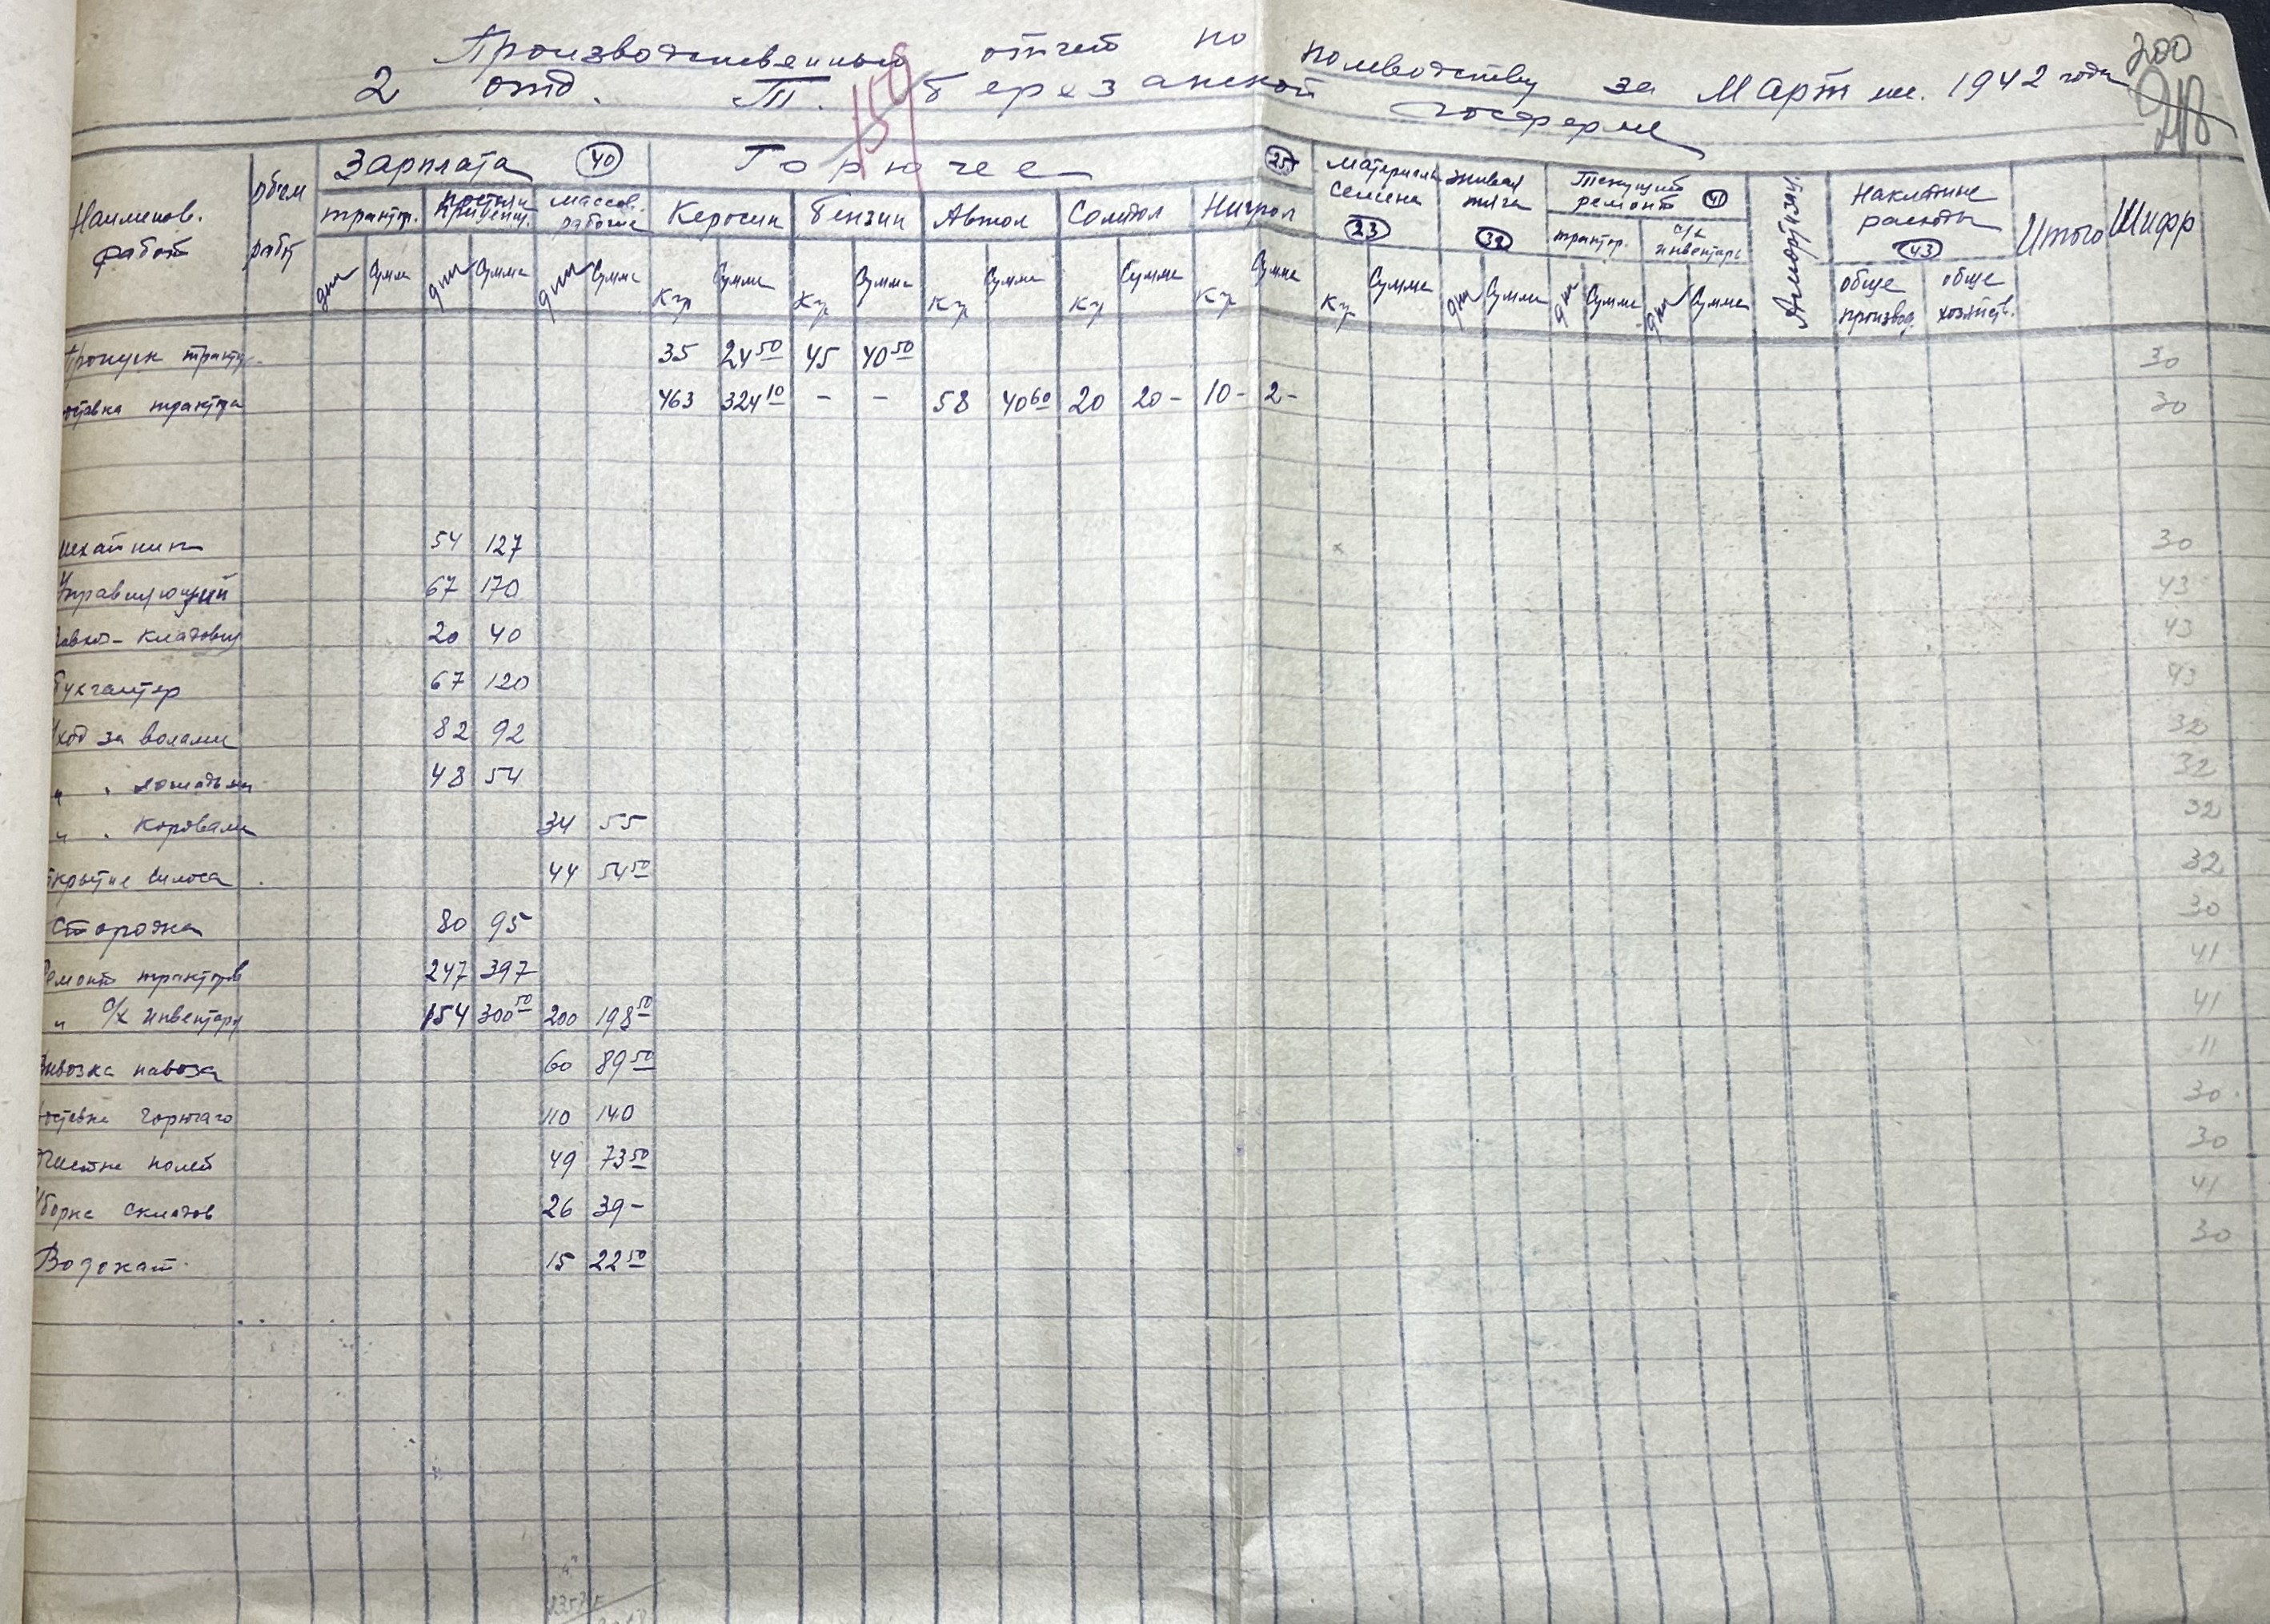 Производственный отчет по полеводству за Март м. 1942 года
2 отд. Т. Березанской госферме
200
218
159
Наименов. работ
Объем работ
Зарплата 40
Горючее 25
трактор.
массов. рабочие
Керосин Бензин Автол Солидол Нигрол
Материалы семена 23
живая тяга 32
Текущий ремонт 41
трактор. с/х инвентарь
Амортизац.
Накладные расходы 43
обще производ. обще хозяйств.
Итого Шифр
дни Сумма дни Сумма дни Сумма Кг Сумма Кг Сумма Кг Сумма Кг Сумма Кг Сумма Кг Сумма дни Сумма дни Сумма дни Сумма
35 24 50 45 40 50 30
оставка трактора 463 324 10 - - 58 40 60 20 20- 10- 2- 30
механик 54 127 30
Управляющий 67 170 43
Завхоз-кладовщ 20 40 43
Бухгалтер 67 120 43
Уход за волами 82 92 32
" " лошадьми 48 54 32
" " Коровами 34 55 32
ткрытие силоса 44 54 50 32
Сторожа 80 95 30
Ремонт тракторов 247 397 41
" с/х инвентаря 154 300 50 200 198 50 41
Вывозка навоза 60 89 50 11
оставка горючаго 110 140 30
чистка полей 49 73 50 30
Уборка складов 26 39- 41
Водокат. 15 22 50 30